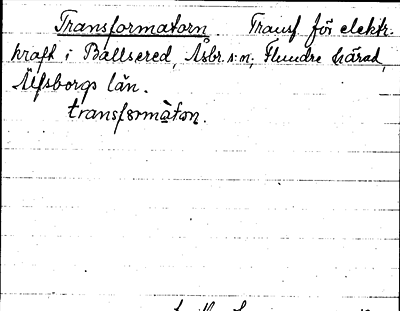 Transformatorn. Transf för elektr.
kraft i Ballsered, Åsbr. s:n, Flundre härad,
Älfsborgs län.
transformàtɷn.